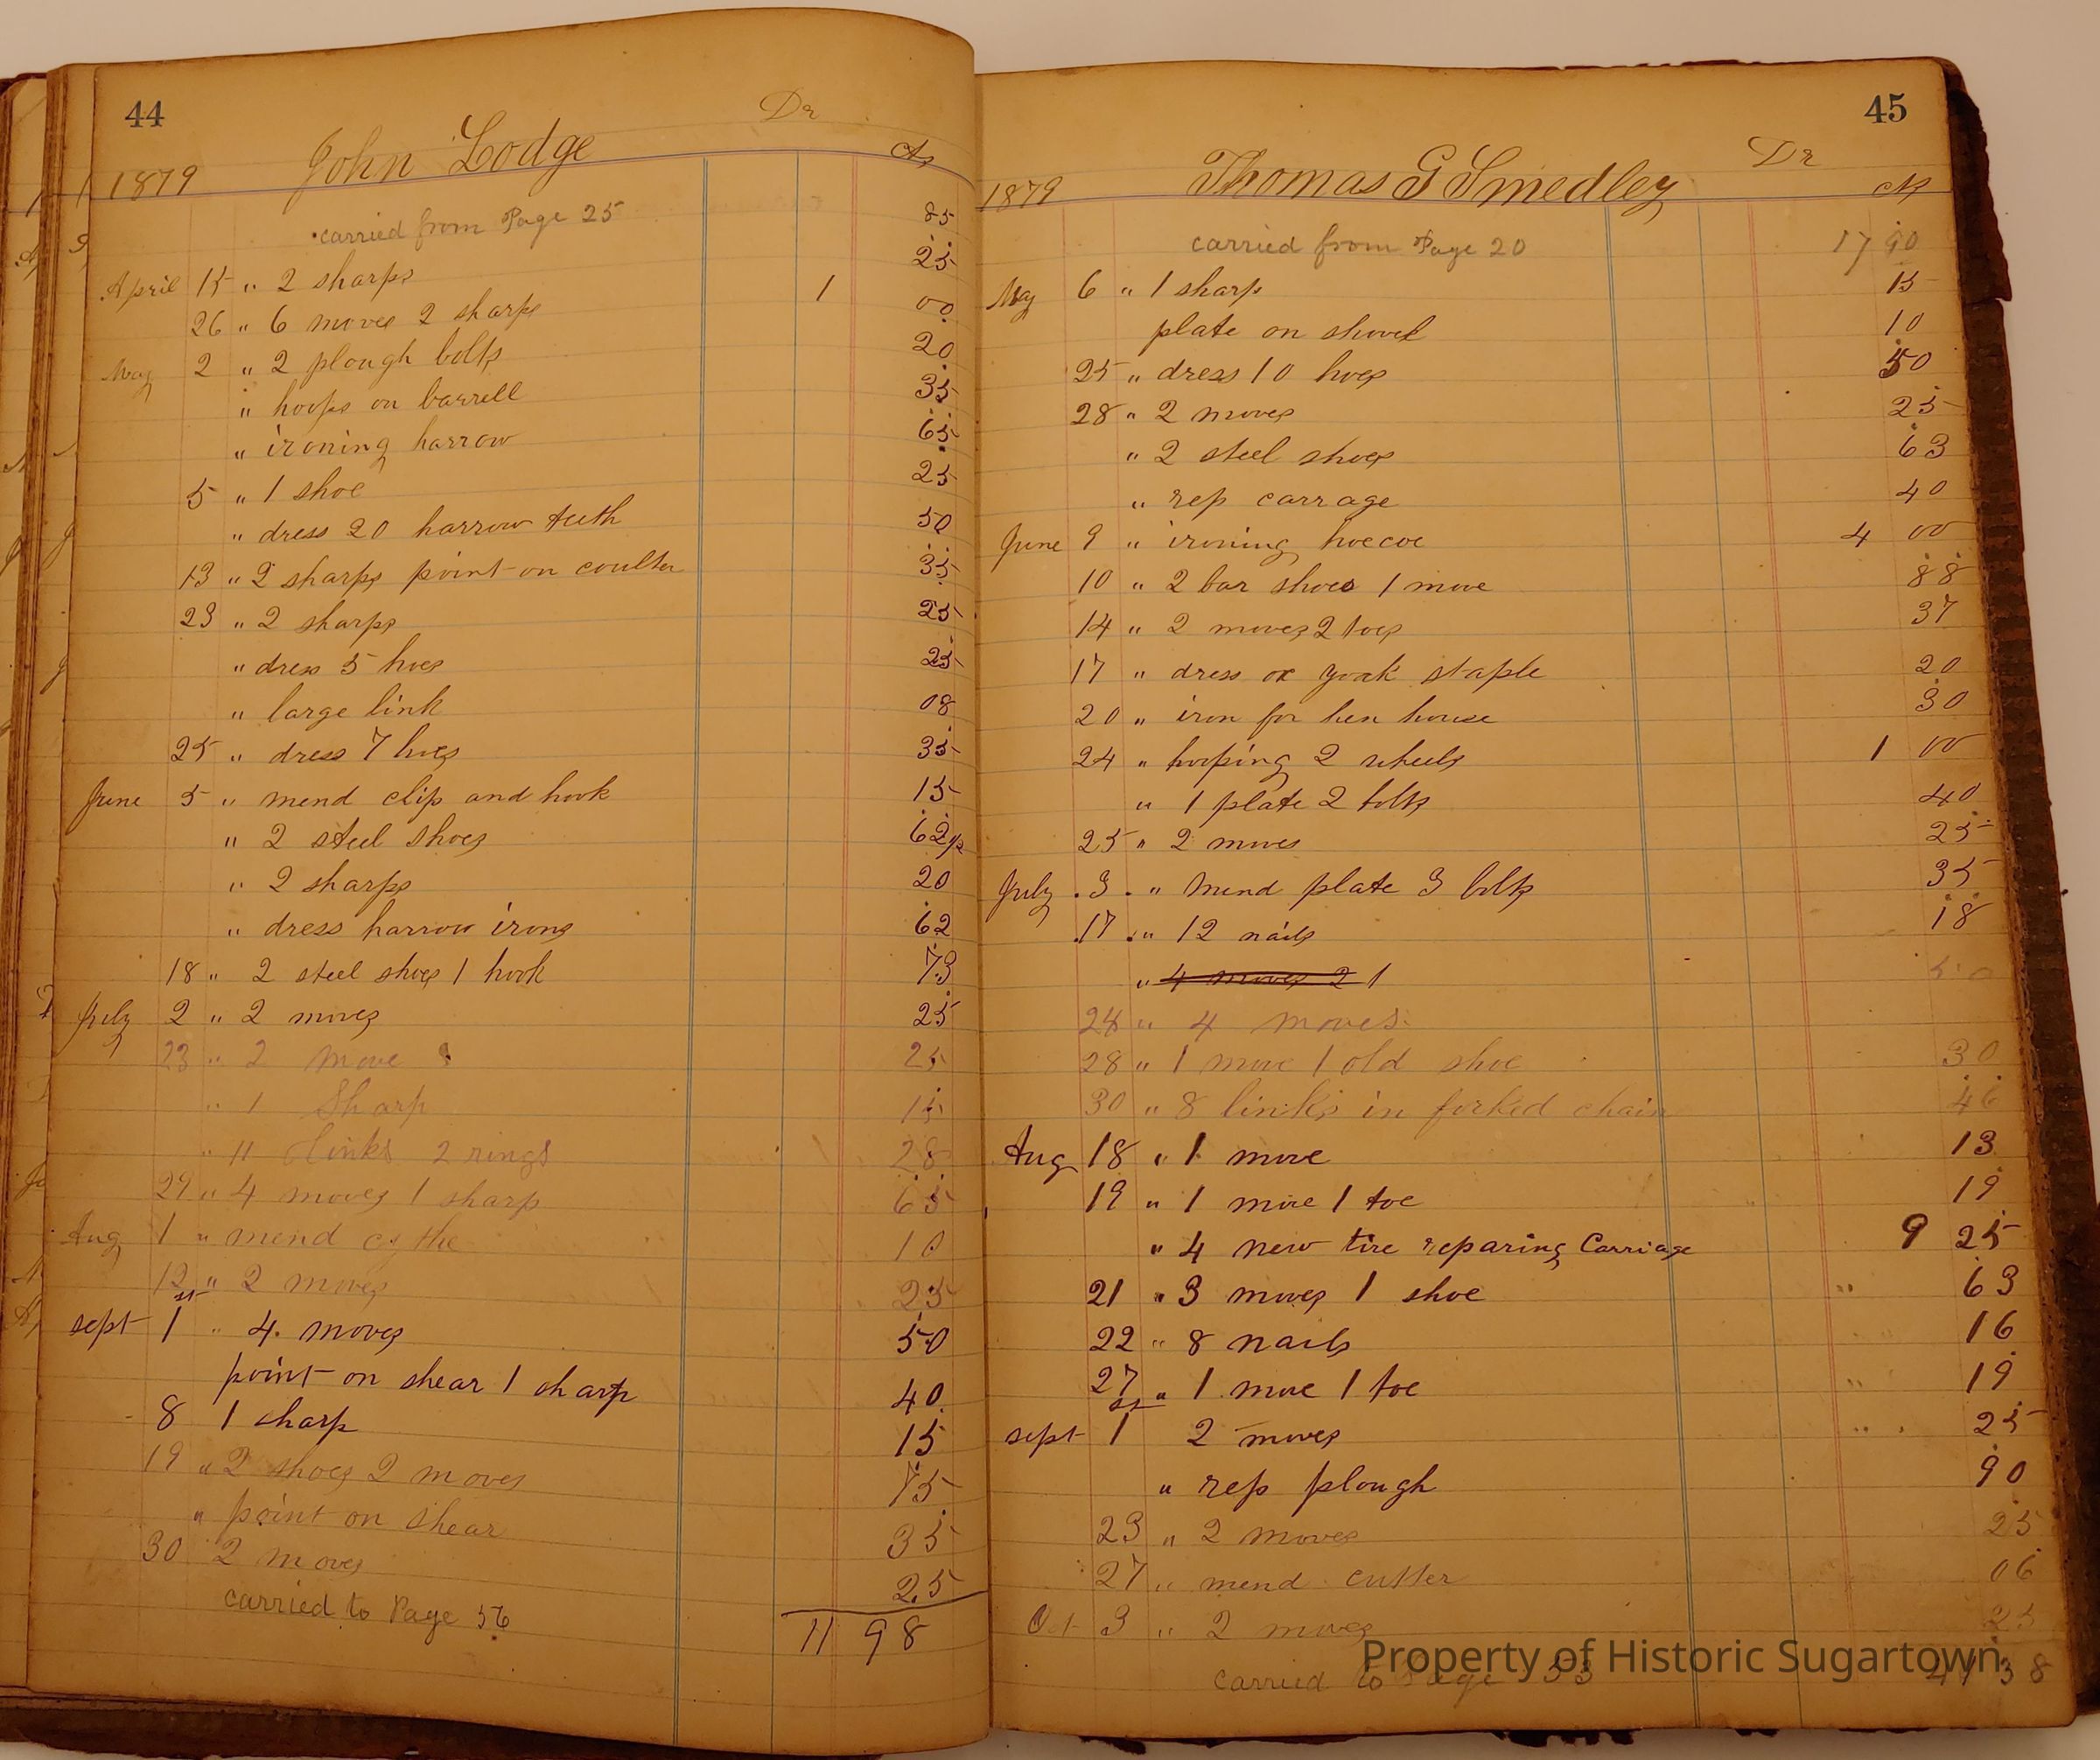 44
Dr
John Lodge
1879 cts
carried from Page 25 85
April 15 " 2 sharps 25
26 " 6 moves 2 sharps 1 00
May 2 " 2 plough bolts 20
" hoops on barrell 35
" ironing harrow 65
5 " 1 shoe 25
" dress 20 harrow teeth 50
13 " 2 sharps point on coulter 35
23 " 2 sharps 25
" dress 5 hoes 25
" large link 08
25 " dress 7 hoes 35
June 5 " mend clip and hook 15
" 2 steel shoes 62 1/2
" 2 sharps 20
" dress harrow irons 62
18 " 2 steel shoes 1 hook 73
July 2 " 2 moves 25
23 " 2 move s 25
" 1 Sharp 15
" 11 links 2 rings 28
29 " 4 moves 1 sharp 65
Aug 1 " mend cythe 10
12 " 2 moves 25
sept 1st " 4 moves 50
point on shear 1 sharp 40
8 1 sharp 15
19 " 2 shoes 2 moves 75
" point on shear 35
30 2 moves 25
carried to Page 56 11 98
45
Dr
Thomas G Smedley
1879 cts
carried from Page 20 17 90
May 6 " 1 sharp 15
plate on shovel 10
25 " dress 10 hoes 50
28 " 2 moves 25
" 2 steel shoes 63
" rep carrage 40
June 9 " ironing hoecoe 4 00
10 " 2 bar shoes 1 move 88
14 " 2 moves 2 toes 37
17 " dress ox yoak staple 20
20 " iron for hen house 30
24 " hooping 2 wheels 1 00
" 1 plate 2 bolts 40
25 " 2 moves 25
July 3 " mend plate 3 bolts 35
17 " 12 nails 18
" 4 moves 2 1 50
24 " 4 moves
28 " 1 move 1 old shoe 30
30 " 8 links in forked chain 46
Aug 18 " 1 move 13
19 " 1 move 1 toe 19
" 4 new tire reparing Carriage 9 25
21 " 3 moves 1 shoe 63
22 " 8 nails 16
27 " 1 move 1 toe 19
sept 1st 2 moves 25
" rep plough 90
23 " 2 moves 25
27 " mend cutter 06
Oct 3 " 2 moves 25
carried to Page 53 41 38
Property of Historic Sugartown